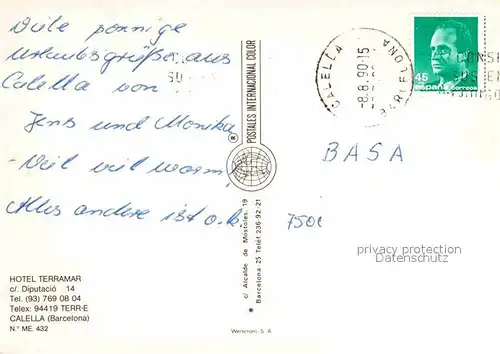 Viele sonnige
Urlaubsgrüße aus
Calella von
Jens und Monika
Viel viel warm,
Alles andere ist o.k.
HOTEL TERRAMAR
c/. Diputació 14
Tel. (93) 769 08 04
Telex: 94419 TERR-E
CALELLA (Barcelona)
N.º ME. 432
POSTALES INTERNACIONAL COLOR
®
c/ Alcalde de Mostoles, 19
Barcelona 25 Teléf 236-92-21
Werscroni, S. A
CALELLA
-8.8.90-15
BARCELONA
45
españa correos
CONSE
BASA
privacy protection
DELCAMPE.NET